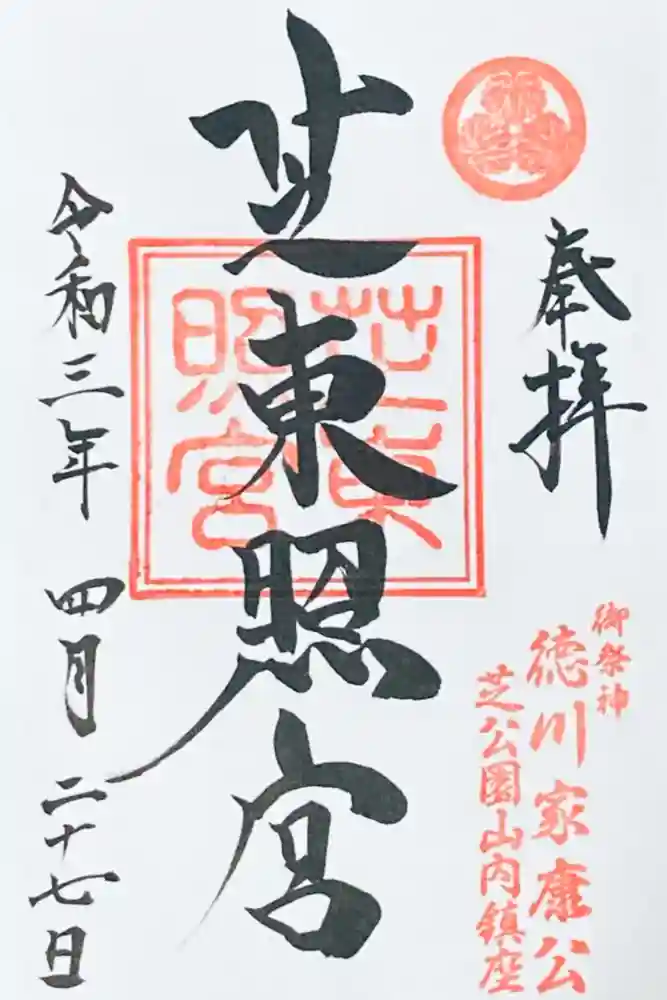 奉拝
御祭神
徳川家康公
芝公園山内鎮座
芝東照宮
芝東
照宮
令和三年 四月 二十七日